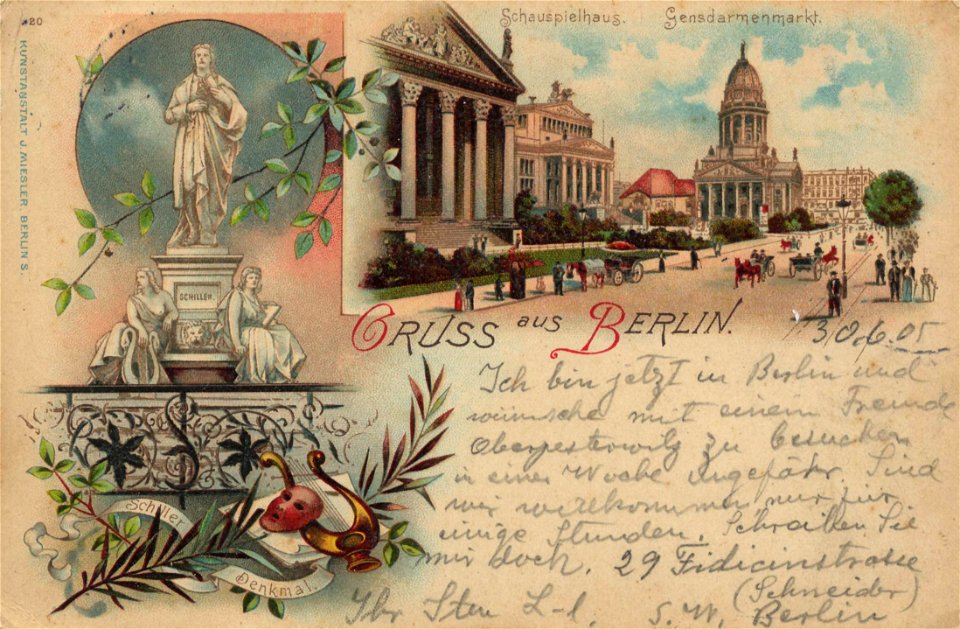 420
KUNSTANSTALT J. MIESLER, BERLIN S.
Schauspielhaus. Gensdarmenmarkt.
SCHILLER.
GRUSS aus BERLIN.
30.6.05
Ich bin jetzt in Berlin und
wünsche mit einem Freunde
zu besuchen
in einer Woche ungefähr. Sind
wir willkommen nur für
einige Stunden. Schreiben Sie
mir doch. 29 Fidicinstrasse
(Schneider)
Ihr Sten L-l. S.W. Berlin
Schiller
Denkmal.